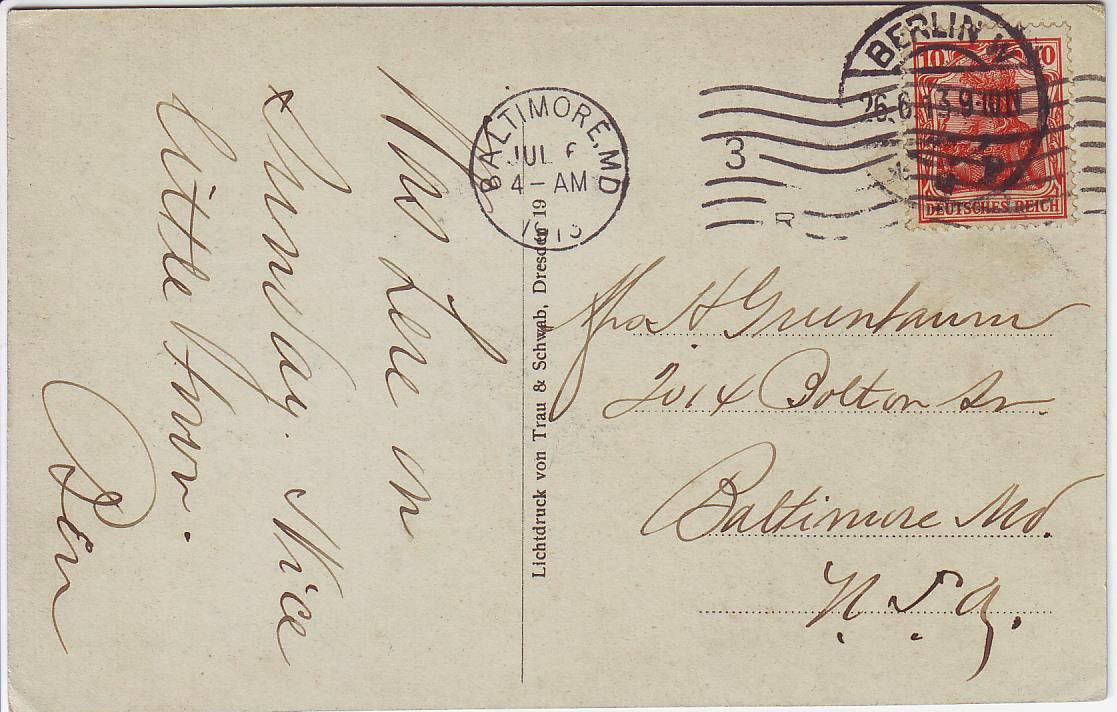 Was here on
Sunday. Nice
little town.
Ben
BALTIMORE, MD
JUL 6
4 - AM
1913
3
R
BERLIN W
26.6.13.9-10 N
10 10
DEUTSCHES REICH
Lichtdruck von Trau & Schwab, Dresden 19
Mrs H Greenbaum
2014 Bolton St.
Baltimore Md.
U.S.A.